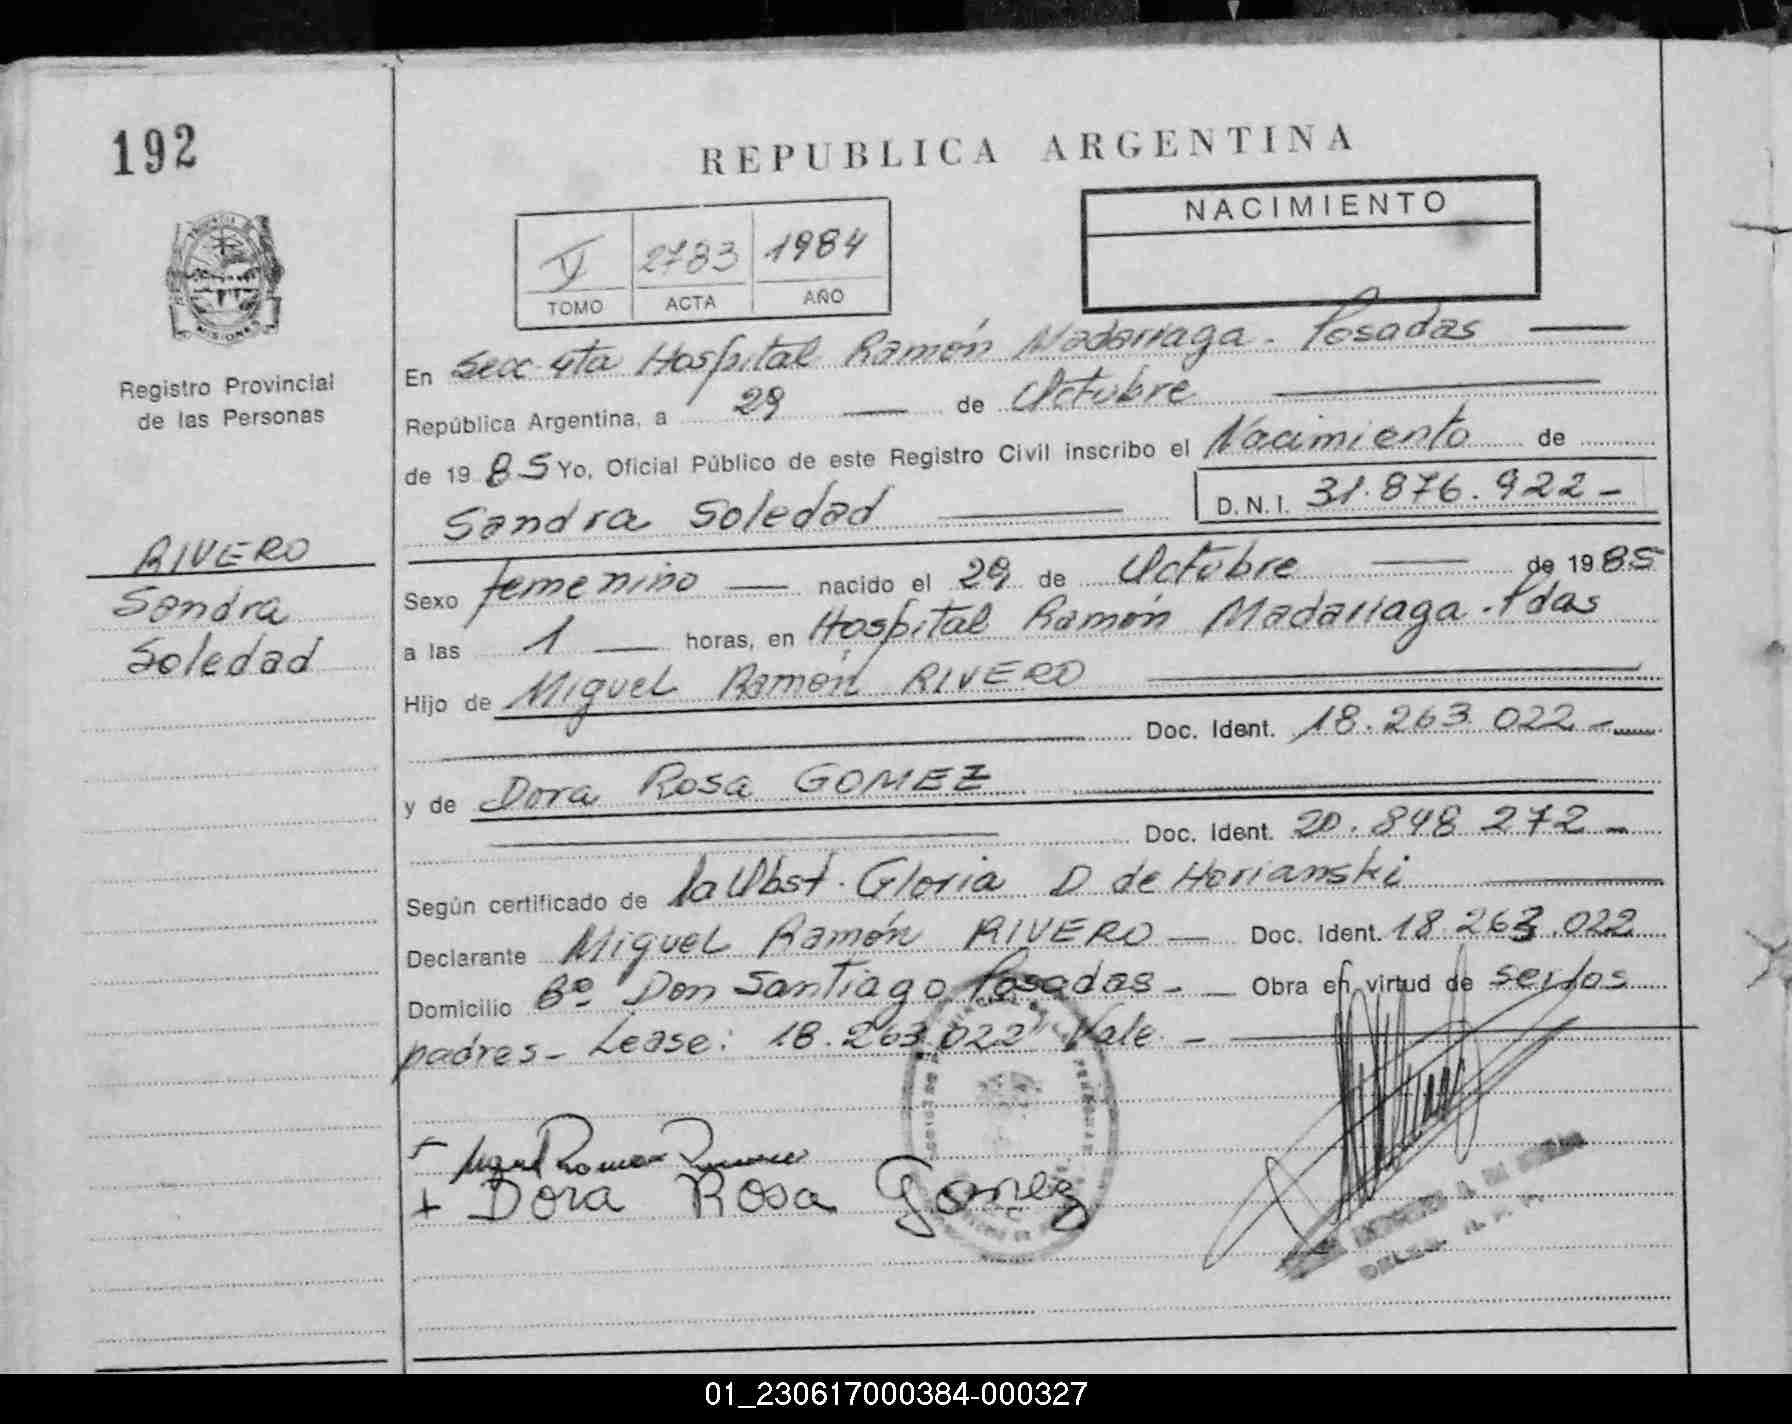 192
REPUBLICA ARGENTINA
NACIMIENTO
V 2783 1984
TOMO ACTA AÑO
MISIONES
Registro Provincial
de las Personas
RIVERO
Sandra
Soledad
En Secc 4ta Hospital Ramón Madarriaga - Posadas
República Argentina, a 29 de Octubre
de 1985 Yo, Oficial Público de este Registro Civil inscribo el Nacimiento de
Sandra Soledad D.N.I. 31.876.922-
Sexo femenino nacido el 29 de Octubre de 1985
a las 1 horas, en Hospital Ramón Madariaga - Pdas
Hijo de Miguel Ramón RIVERO
Doc. Ident. 18.263.022-
y de Dora Rosa GOMEZ
Doc. Ident. 20.848 272-
Según certificado de la Obst. Gloria D de Horianski
Declarante Miguel Ramón RIVERO Doc. Ident. 18.263.022
Domicilio Bº Don Santiago Posadas - Obra en virtud de serlos
padres- Lease: 18.263.022 Vale -
Miguel Ramon Rivero
+ Dora Rosa Gomez
01_230617000384-000327